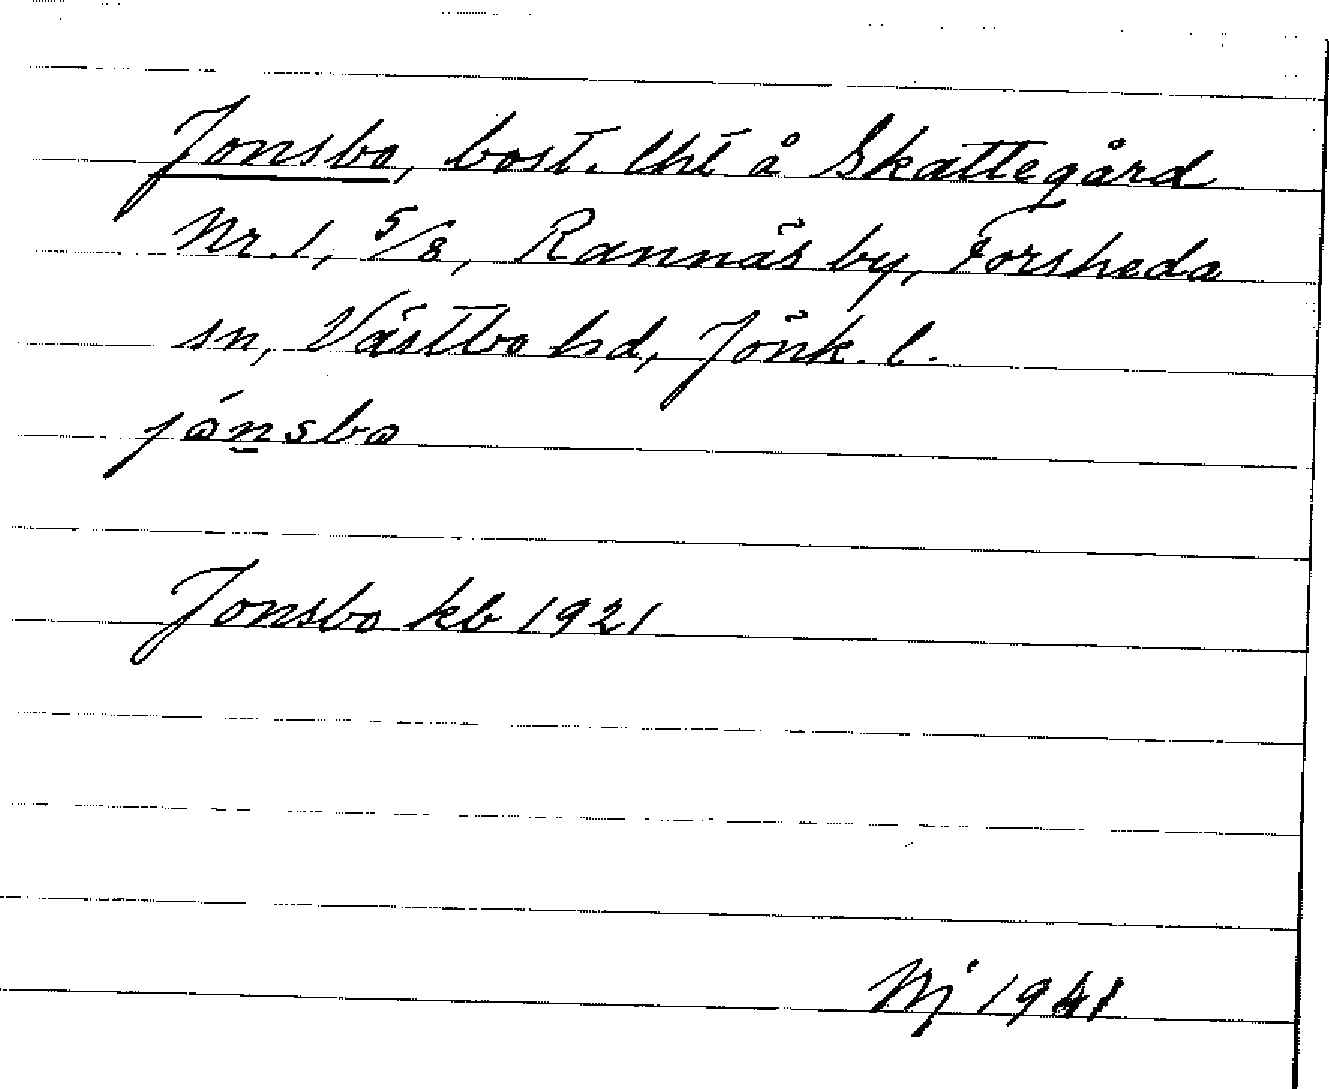 Jonsbo, bost. lht å Skattegård
Nr. 1, 5/8, Rannäs by, Forsheda
sn, Västbo hd, Jönk. l.
jánsba
Jonsbo kb 1921
1941